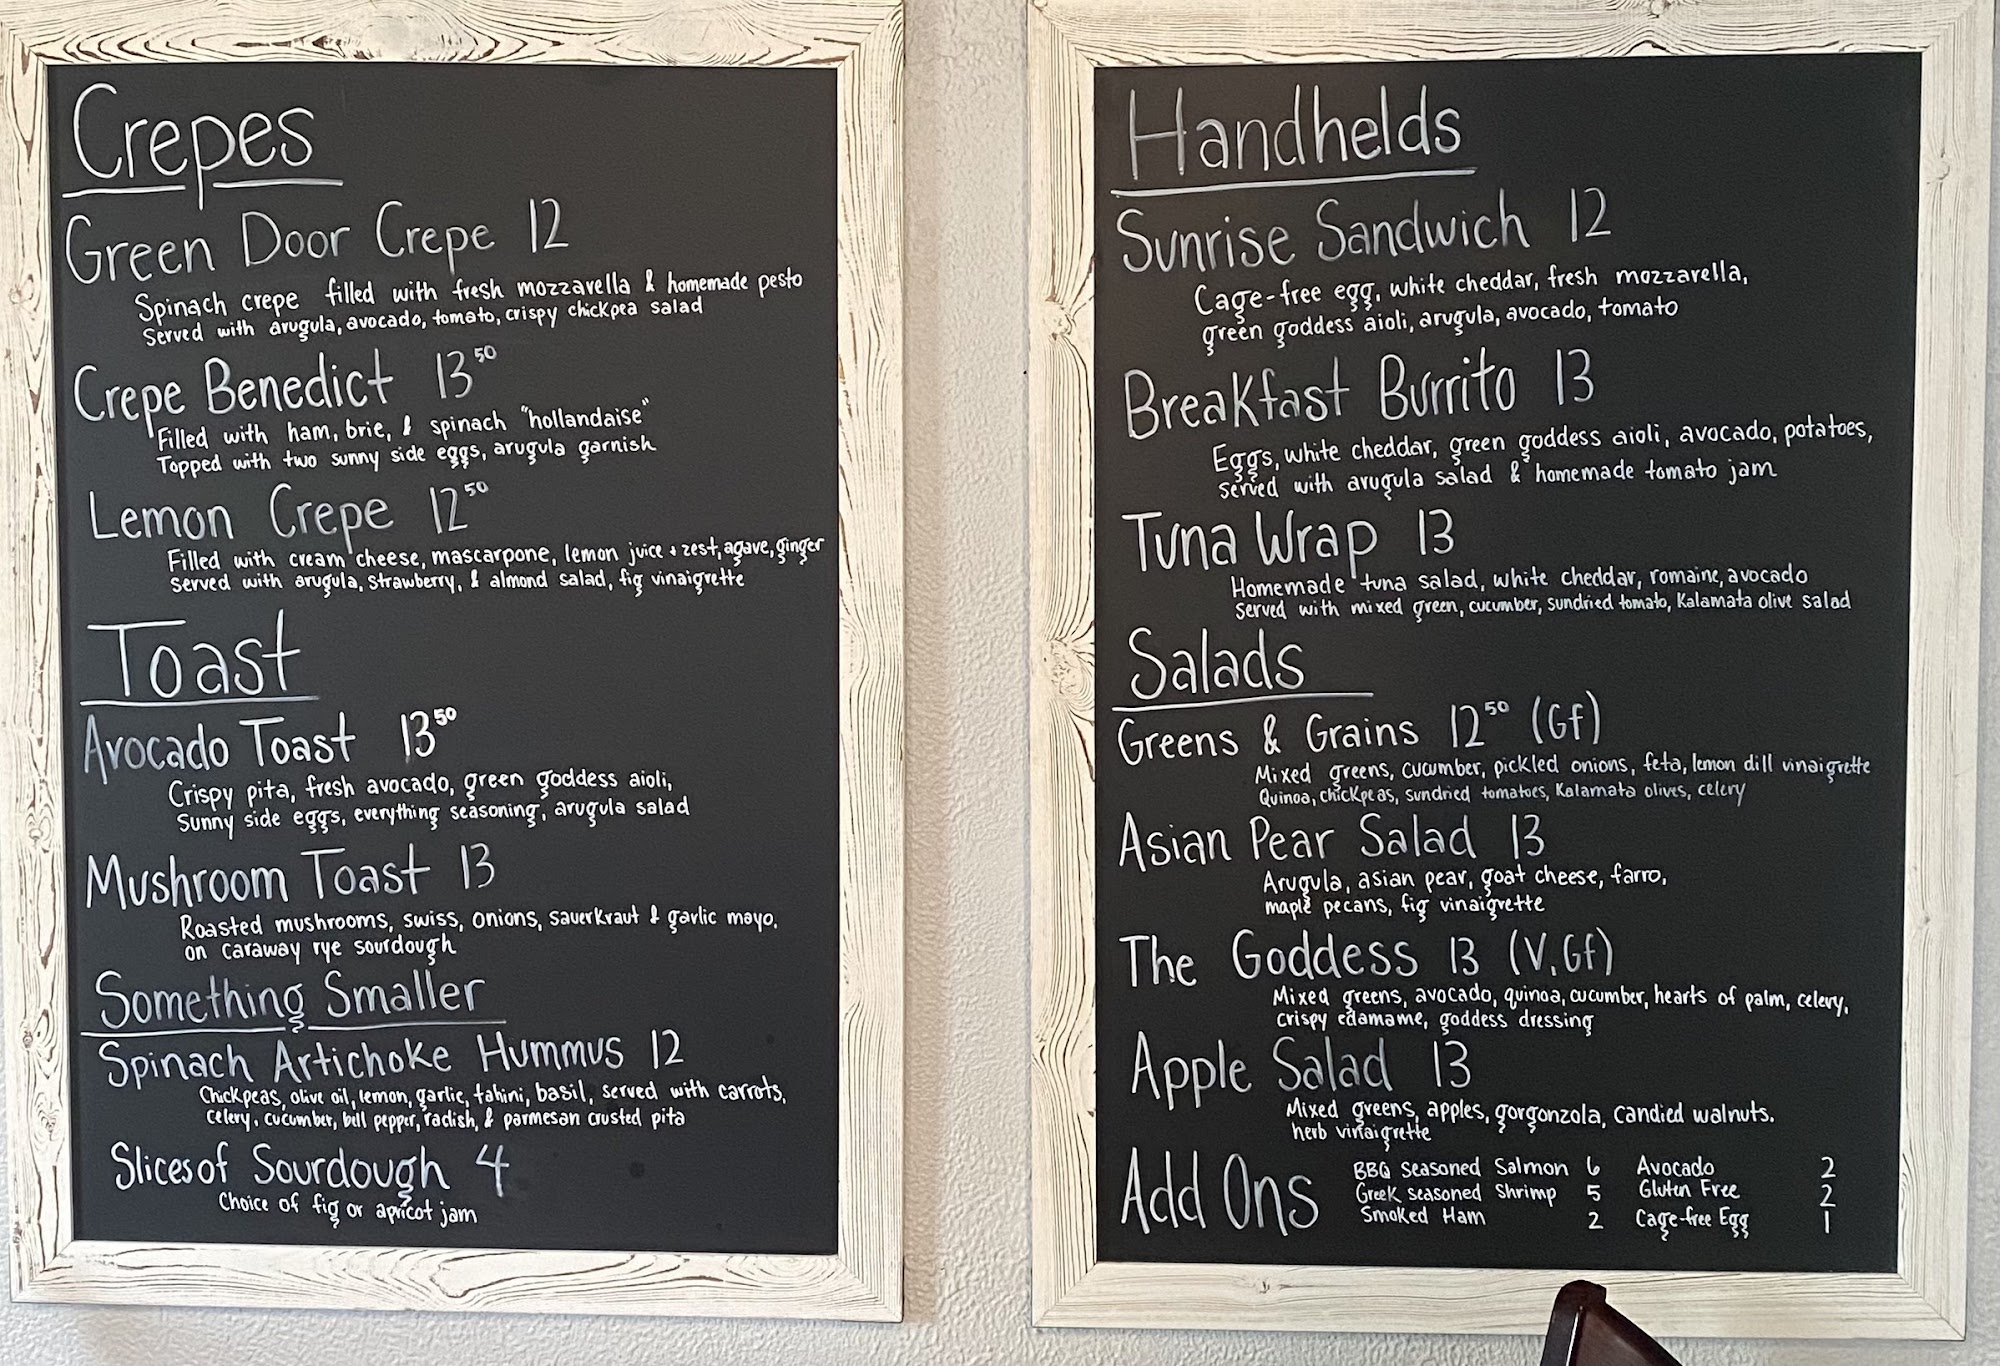 Crepes
Green Door Crepe 12
Spinach crepe filled with fresh mozzarella & homemade pesto
Served with arugula, avocado, tomato, crispy chickpea salad
Crepe Benedict 13⁵⁰
Filled with ham, brie, & spinach "hollandaise"
Topped with two sunny side eggs, arugula garnish
Lemon Crepe 12⁵⁰
Filled with cream cheese, mascarpone, lemon juice + zest, agave, ginger
Served with arugula, strawberry, & almond salad, fig vinaigrette
Toast
Avocado Toast 13⁵⁰
Crispy pita, fresh avocado, green goddess aioli,
Sunny side eggs, everything seasoning, arugula salad
Mushroom Toast 13
Roasted mushrooms, swiss, onions, sauerkraut & garlic mayo,
on caraway rye sourdough
Something Smaller
Spinach Artichoke Hummus 12
Chickpeas, olive oil, lemon, garlic, tahini, basil, served with carrots,
celery, cucumber, bell pepper, radish, & parmesan crusted pita
Slices of Sourdough 4
Choice of fig or apricot jam
Handhelds
Sunrise Sandwich 12
Cage-free egg, white cheddar, fresh mozzarella,
green goddess aioli, arugula, avocado, tomato
Breakfast Burrito 13
Eggs, white cheddar, green goddess aioli, avocado, potatoes,
served with arugula salad & homemade tomato jam
Tuna Wrap 13
Homemade tuna salad, white cheddar, romaine, avocado
Served with mixed green, cucumber, sundried tomato, Kalamata olive salad
Salads
Greens & Grains 12⁵⁰ (Gf)
Mixed greens, cucumber, pickled onions, feta, lemon dill vinaigrette
Quinoa, chickpeas, sundried tomatoes, Kalamata olives, celery
Asian Pear Salad 13
Arugula, asian pear, goat cheese, farro,
maple pecans, fig vinaigrette
The Goddess 13 (V, Gf)
Mixed greens, avocado, quinoa, cucumber, hearts of palm, celery,
crispy edamame, goddess dressing
Apple Salad 13
Mixed greens, apples, gorgonzola, candied walnuts.
herb vinaigrette
Add Ons
BBQ Seasoned Salmon 6 Avocado 2
Greek Seasoned Shrimp 5 Gluten Free 2
Smoked Ham 2 Cage-free Egg 1